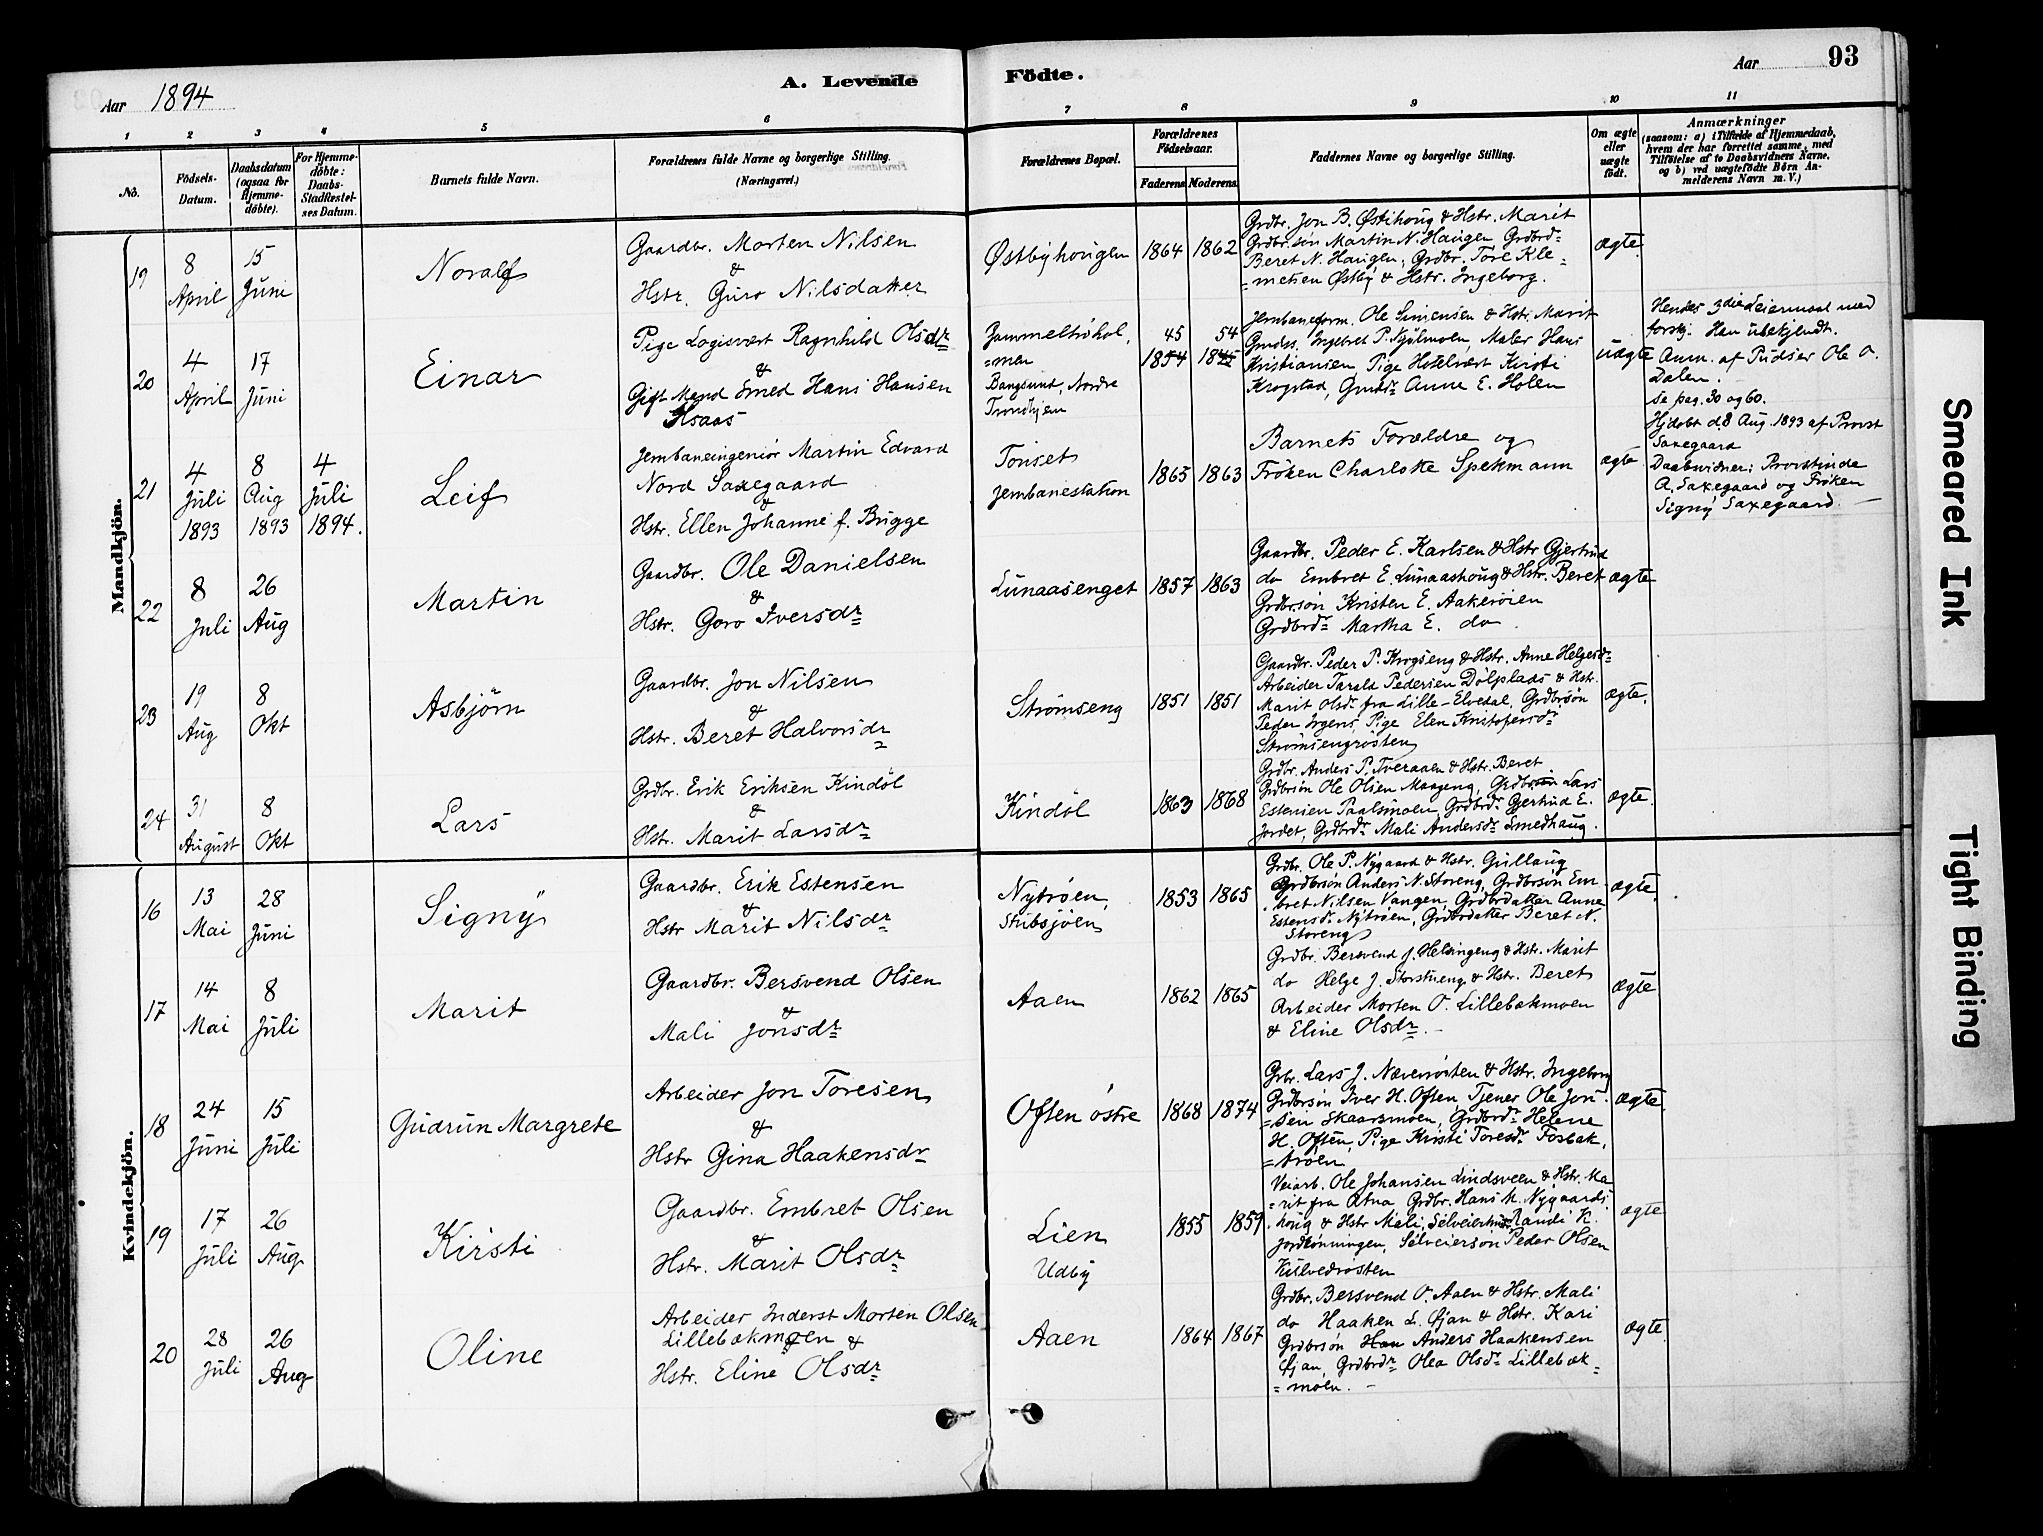 Aar 1894
A. Levende
Födte.
Aar 93
1 2 3 4 5 6 7 8 9 10 11
No.
Födsels-
Datum.
Daabsdatum
(ogsaa for
Hjemme-
döbte).
For Hjemme-
döbte:
Daabs-
Stadfæstel-
ses Datum.
Barnets fulde Navn.
Forældrenes fulde Navne og borgerlige Stilling.
(Næringsvei.)
Forældrenes Bopæl.
Forældrenes
Födselsaar.
Faderens
Moderens
Faddernes Navne og borgerlige Stilling.
Om ægte
eller
uægte
födt.
Anmærkninger
(saasom: a) i Tilfælde af Hjemmedaab,
hvem der har forrettet samme, med
Tilföielse af to Daabsvidners Navne,
og b) ved uægtefödte Börn An-
melderens Navn m. V.)
Mandkjön.
19
8
April
15
Juni
Noralf
Gaardbr. Morten Nilsen
&
Hstr. Guro Nilsdatter
Østbyhougen
1864
1862
Grdbr. Jon B. Østihoug & Hstr. Marit
Grdbr.søn Martin N. Haugen, Grdbrd=
Beret N. Haugen, Grdbr. Tore Kle=
=metsen Østby & Hstr. Ingeborg.
ægte.
20
4
April
17
Juni
Einar
Pige Logisvært Ragnhild Olsdr
&
Gift Mand Smed Hans Hansen
Bangsund, Nordre
Trondhjem
45
1854
54
1845
Jernbaneform. Ole Simensen & Hstr. Marit
Maler Hans
Kristiansen, Pige Hotelvært Kirsti
Krogstad, Anne E. Holen
uægte
Hendes 3die Leiermaal med
forskj. Han ubekjendt.
Anm. af Pudser Ole O.
Dalen.
se pag. 30 og 60.
21
4
Juli
1893
8
Aug
1893
4
Juli
1894.
Leif
Jernbaneingeniør Martin Edvard
Nord Saxegaard
&
Hstr. Ellen Johanne f. Brügge
Tønset
Jernbanestation
1865
1863
Barnets Forældre og
Frøken Charlotte Spekmann
ægte
Hjdøbt d. 8 Aug. 1893 af Provst
Saxegaard
Daabsvidner: Provstinde
A. Saxegaard og Frøken
Signy Saxegaard.
22
8
Juli
26
Aug
Martin
Gaardbr. Ole Danielsen
&
Hstr. Goro Iversdr
Lunaasenget
1857
1863
Gaardbr. Peder E. Karlsen & Hstr Gjertrud
do Embret E. Lunaashoug & Hstr. Beret
Grdbrsøn Kristen E. Aakerøien
Grdbrdr Martha E. do.
ægte
23
19
Aug
8
Okt
Asbjörn
Gaardbr. Jon Nilsen
&
Hstr. Beret Halvorsdr
Strømseng
1851
1851
Gaardbr. Peder P. Krogseng & Hstr. Anne Helgesdr
Arbeider Tarald Pedersen Dølplads & Hstr.
Marit Olsdr fra Lille-Elvedal, Grdbrsøn
Peder Irgens, Pige Elen Kristofersdr
Strømsengrøsten
ægte.
24
31
August
8
Okt
Lars
Grdbr. Erik Eriksen Kindøl
&
Hstr. Marit Larsdr
Kindøl
1863
1868
Grdbr. Anders P. Tveraaen & Hstr. Beret
Grdbrsøn Ole Olsen Moseng, Grdbrsøn Lars
Estensen Paalsmoen, Grdbrdr Gjertrud E.
Jordet, Grdbrdr Mali Andersdr Smedhaug.
ægte.
Kvindekjön.
16
13
Mai
28
Juni
Signy
Gaardbr. Erik Estensen
&
Hstr Marit Nilsdr
Nytrøen,
Stubsjøen
1853
1865
Grdbr. Ole P. Nygaard & Hstr. Gullaug
Grdbrsøn Anders N. Storeng, Grdbrsøn Em-
bret Nilsen Vangen, Grdbrdatter Anne
Estensdr Nytrøen, Grdbrdatter Beret N.
Storeng
ægte.
17
14
Mai
8
Juli
Marit
Gaardbr. Bersvend Olsen
&
Mali Jonsdr
Aaen
1862
1865
Grdbr. Bersvend J. Helsingeng & Hstr. Marit
do Helge J. Storstueng & Hstr. Beret
Arbeider Morten O. Lillebækmoen
& Eline Olsdr.
ægte
18
24
Juni
15
Juli
Gudrun Margrete
Arbeider Jon Toresen
&
Hstr Gina Haakensdr
Often østre
1868
1874
Grbr. Lars J. Næverrøsten & Hstr. Ingeborg
Grdbrsøn Iver H. Often Tjener Ole Jon-
=sen Skaarsmoen, Grdbrdr Helene
H. Often, Pige Kristi Toresdr Fosbak,
=trøen
ægte.
19
17
Juli
26
Aug
Kirsti
Gaardbr. Embret Olsen
&
Hstr. Marit Olsdr
Lien
Udby
1855
1859
Veiarb. Ole Johansen Lindsveen & Hstr. Ma
=rit fra Atna Grdbr. Hans M. Nygaards-
houg & Hstr Mali, Randi K.
Selveiersøn Peder Olsen
Kulvedrøsten
ægte
20
28
Juli
26
Aug
Oline
Arbeider Inderst Morten Olsen
Lillebækmoen &
Hstr. Eline Olsdr
Aaen
1864
1867
Grdbr. Bersvend O. Aaen & Hstr. Mali
do Haaken L. Øian & Hstr. Kari
Grdbrsøn Anders Haakensen
Øian, Grdbrdr Olea Olsdr Lillebæk=
=moen.
ægte.
Smeared Ink
Tight Binding